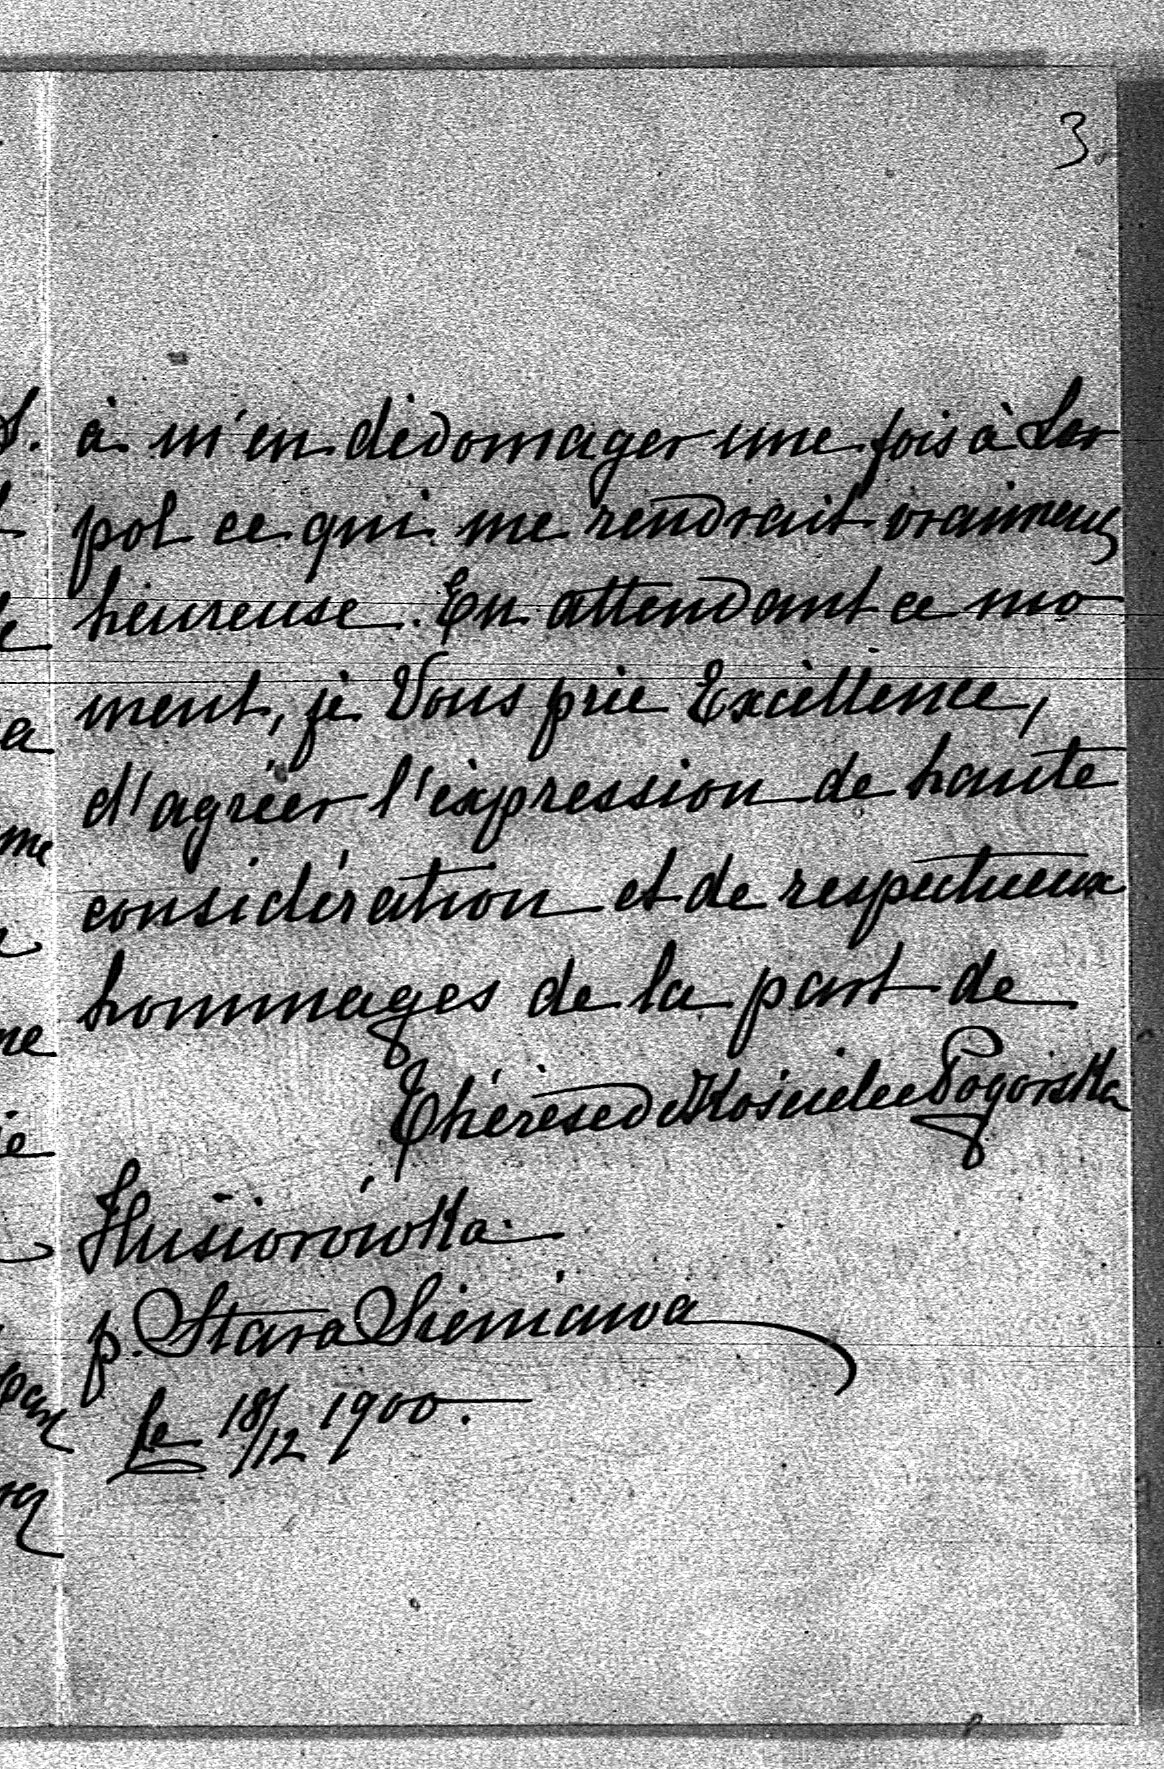 3
à m'en dédomager une fois à Leo
pol ce qui me rendrait vraiment
heureuse. En attendant ce mo-
ment, je Vous prie Excellence,
d'agréer l'expression de haute
considération et de respectueux
hommages de la part de
Thérèse de Kościelec Pogorska
p. Stara Sieniawa
le 18/12 1900.